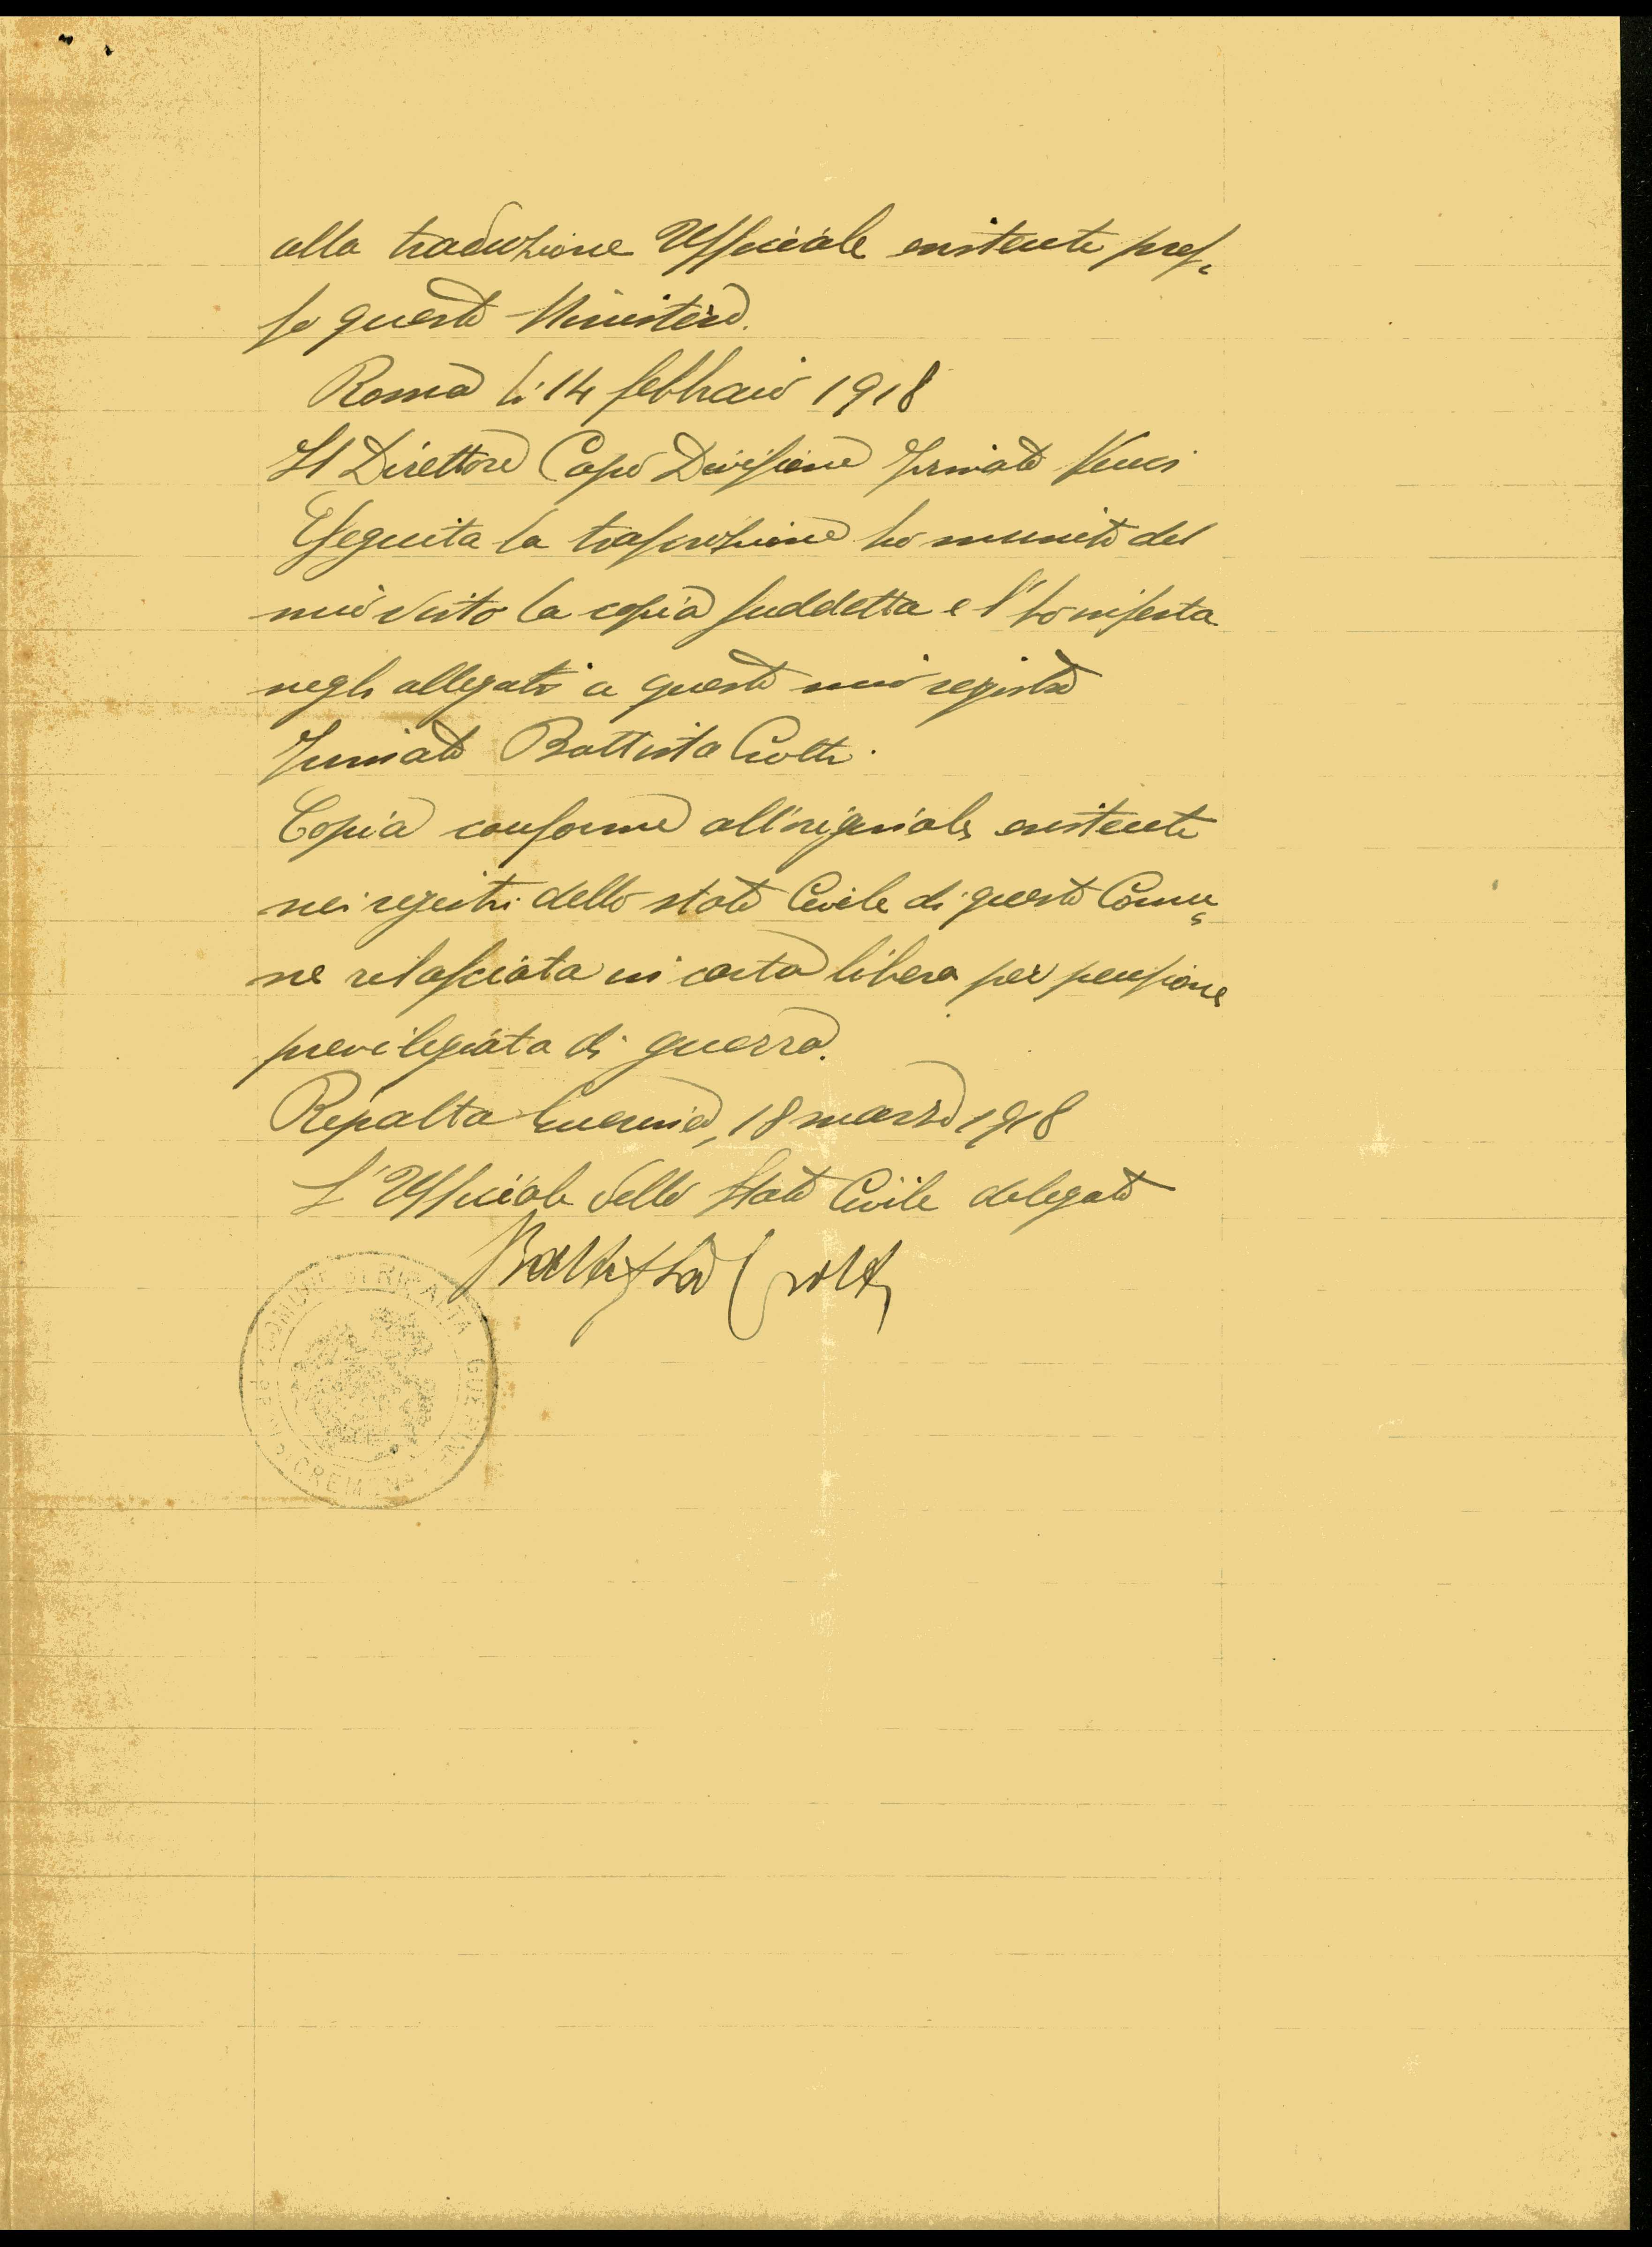 alla traduzione Ufficiale esistente pres-
so questo Ministero.
Roma lì 14 febbraio 1918
Il Direttore Capo Divisione Firmato
Eseguita la trascrizione ho munito del
mio visto la copia suddetta e l'ho inserta
negli allegati a questo mio registro
Firmato Battista Crotti.
Copia conforme all'originale esistente
nei registri dello stato Civile di questo Comu-
ne rilasciata in carta libera per pensione
previlegiata di guerra.
Ripalta Guerina, 18 marzo 1918
L'Ufficiale dello Stato Civile delegato
Battista Crotti
COMUNE DI RIPALTA GUERINA
CREMONA